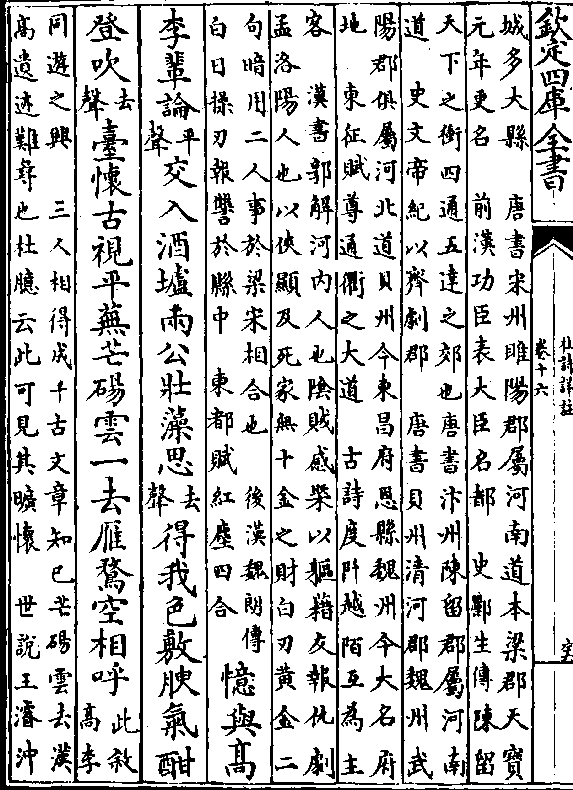 欽定四庫全書
杜詩詳註
卷十六
城多大縣　唐書宋州睢陽郡屬河南道本梁郡天寶
元年更名　前漢功臣表大臣名都　史酈生傳陳留
天下之衝四通五達之郊也唐書汴州陳留郡屬河南
道　史文帝紀以齊劇郡　唐書貝州清河郡魏州武
陽郡俱屬河北道貝州今東昌府恩縣魏州今大名府
地　東征賦尊通衢之大道　古詩度阡越陌互為主
客　漢書郭解河内人也陰賊感槩以軀藉友報仇劇
孟洛陽人也以俠顯及死家無十金之財白刃黃金二
句暗用二人事於梁宋相合也　後漢魏朗傳
白日操刃報讐於縣中　東都賦紅塵四合
憶與高
李輩論平聲交入酒壚兩公壯藻思去聲得我色敷腴氣酣
登吹去聲臺懷古視平蕪芒碭雲一去雁鶩空相呼此敘高李
同遊之興　三人相得成千古文章知已芒碭雲去漢
高遺迹難尋也杜臆云此可見其曠懷　世說王濬沖